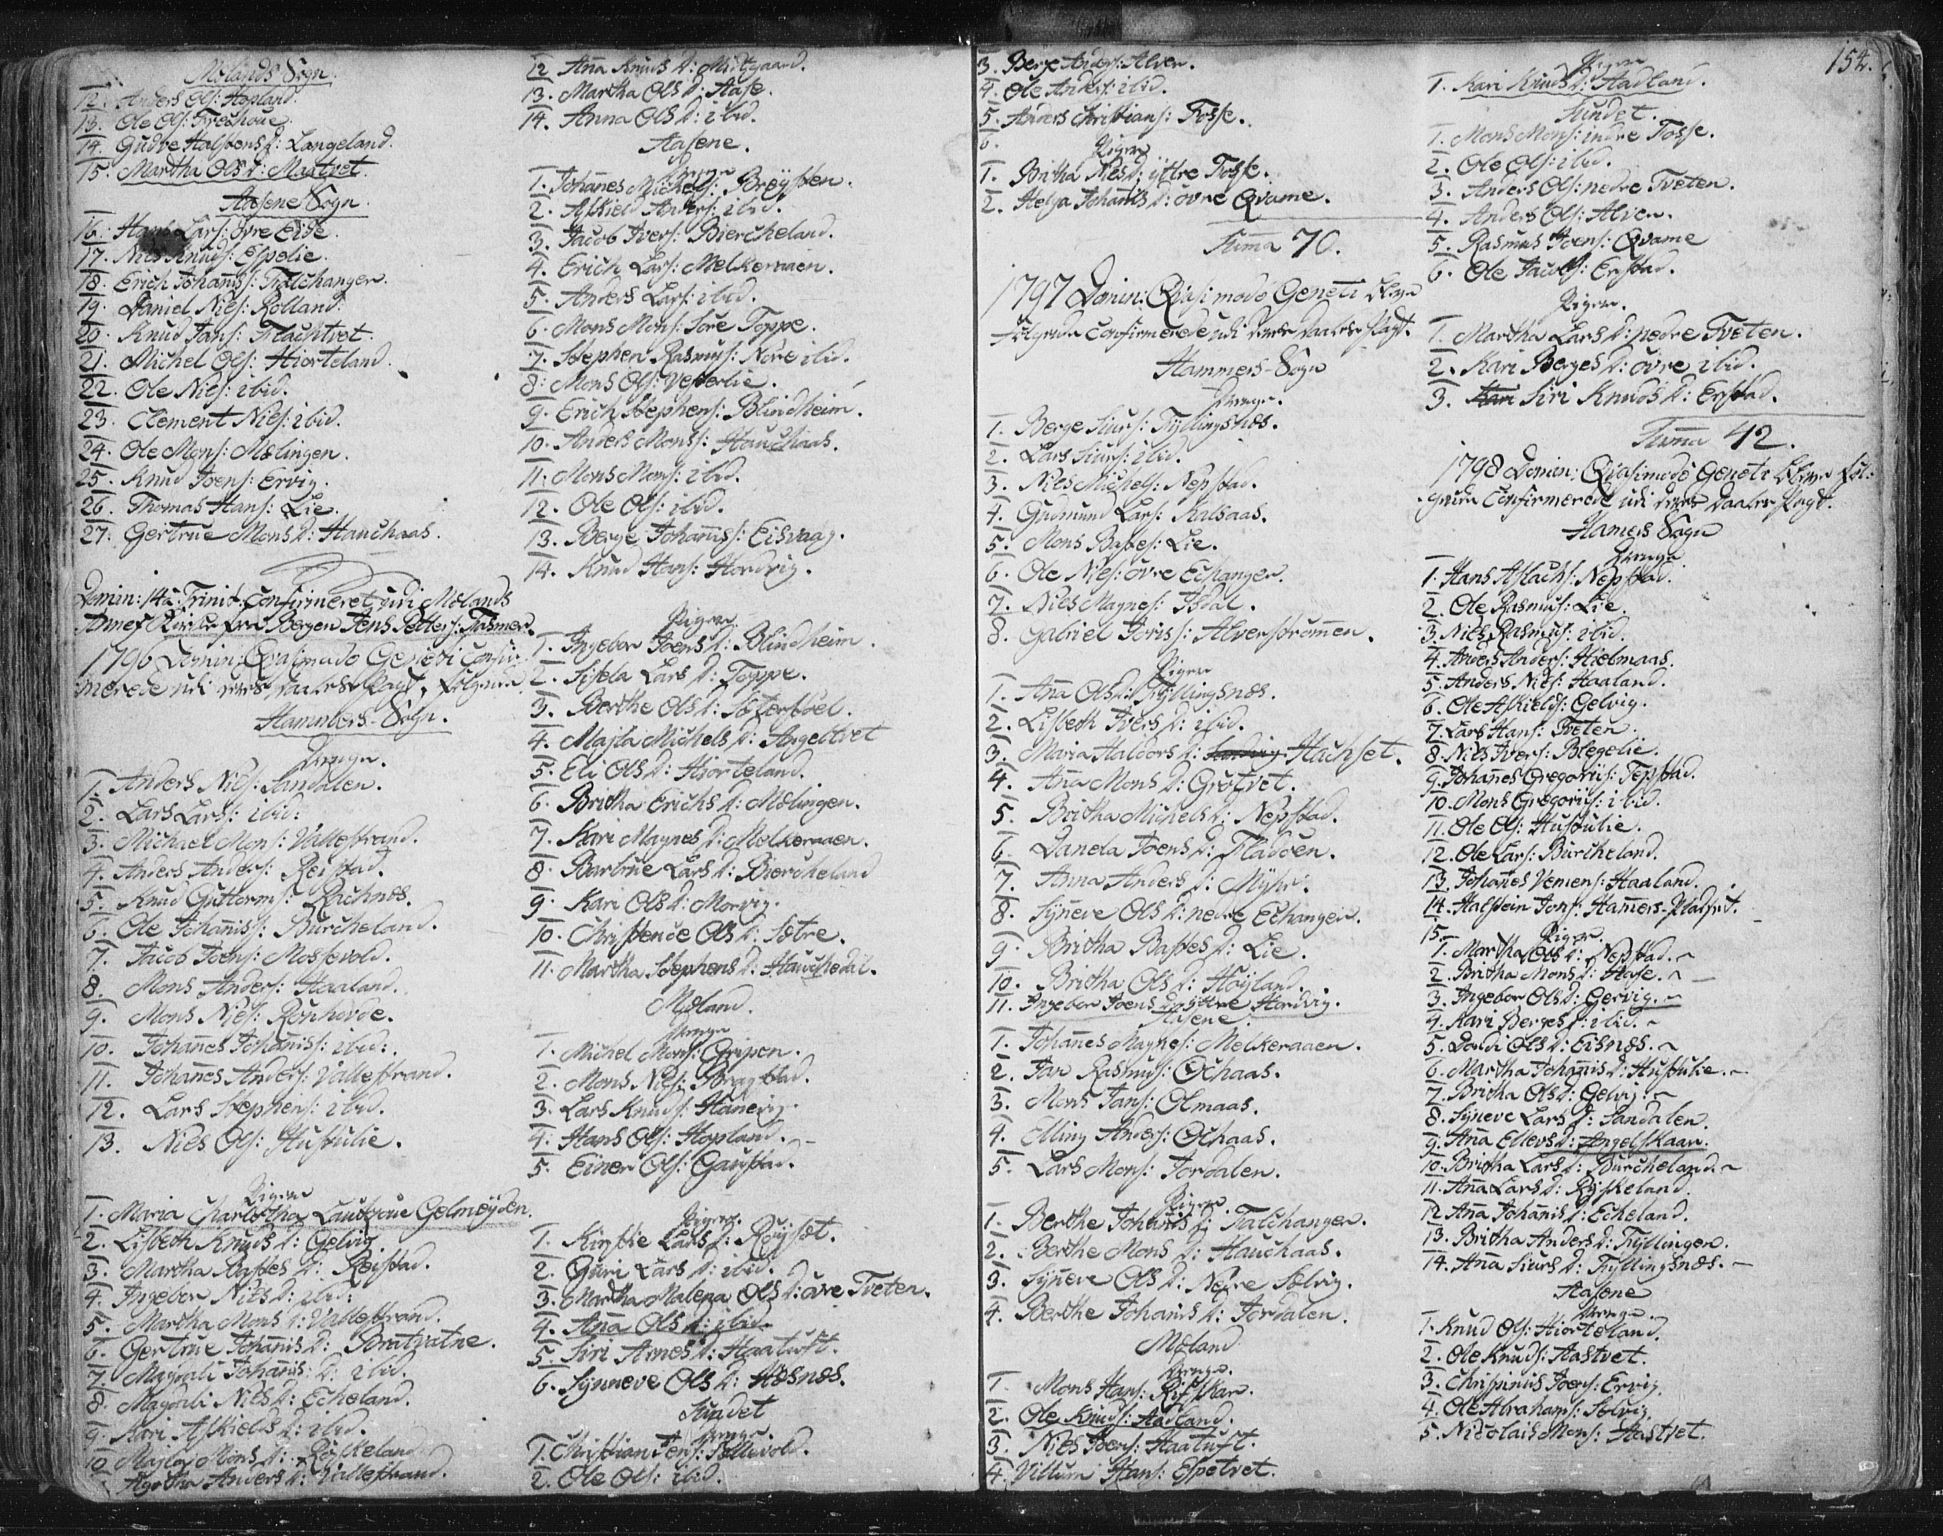 Mølands Sogn.
12. Anders Ols: Hopland.
13. Ole Ols:
14. Gudve Halstens D: Langeland.
15. Martha Ols D: Mastvet.
Aasene Sogn.
16. Hans Lars: Øvre Eide.
17. Niels Knuds: Espelie.
18. Erich Johannis: Talchanger.
19. Daniel Niels: Rolland.
20. Knud Jans: Flachtvet.
21. Michel Ols: Hiorteland.
22. Ole Niels: ibid.
23. Clement Niels: ibid.
24. Ole Mons: Mælingen.
25. Knud Joens: Ervig.
26. Thomas Hans: Lie.
27. Gertrue Mons D: Hauchaas.
Domin: 14a Trinit. Confirmeret udi Mølands
Annex Kirke fra Bergen Jens Petter: Fasmer.
1796 Domin: Qvasimodo Geniti Confir-
merede udi deres Daabes Pagt, følgende
Hammers-Sogn.
Drenge.
1. Anders Niels: Sandalen.
2. Lars Lars: ibid:
3. Michael Mons: Vallestrand.
4. Anders Anders: Reistad.
5. Knud Guttorms: Rachnes.
6. Ole Johannis: Burcheland.
7. Jacob Joens: Mossevold.
8. Mons Anders: Haaland.
9. Mons Niels: Rønhovde.
10. Johannes Johannis: ibid:
11. Johannes Anders: Vallestrand.
12. Lars Stephens: ibid.
13. Niels Ols: Hustulie.
Piger
1. Maria Charlotha Gelmøyden.
2. Lisbeth Knuds D: Gelvig.
3. Martha Bastes D: Reistad.
4. Ingebor Niels D: ibid:
5. Martha Mons D: Vallestrand.
6. Gertrue Johannis D: Bratvatne.
7. Magdali Johannis: D: ibid.
8. Magdali Niels D: Echeland.
9. Kari Askields D: ibid.
10. Majla Mons D: Røskeland
Agatha Anders D: Vallestrand.
12. Anna Knuds D: Midtgaard.
13. Martha Ols D: Aase.
14. Anna Ols D: ibid.
Aasene.
Drenge
1. Johannes Michels: Brøysten.
2. Askield Anders: ibid.
3. Jacob Ivers: Biercheland.
4. Erich Lars: Melkeraaen.
5. Anders Lars: ibid.
6. Mons Mons: Søre Toppe.
7. Stephen Rasmus: Nore ibid.
8. Mons Ols: Vesterlie.
9. Erich Stephens: Blindheim.
10. Anders Monss: Hauchaas.
11. Mons Mons: ibid.
12. Ole Ols: ibid.
13. Berge Johannis: Eisvaag.
14. Knud Hans: Hordvig.
Piger
1. Ingebor Joens D: Blindheim.
2. Sisela Lars D: Toppe.
3. Berthe Ols D: Sæterstøel.
4. Majla Michels D: Langeltvet
5. Eli Ols D: Hiorteland.
6. Britha Erichs D: Mælingen.
7. Kari Magnes D: Melkeraaen.
8. Bartrue Lars D: Biercheland
9. Kari Ols D: Morvig.
10. Christence Ols D: Sætre.
11. Martha Stephens D: Hauchedal.
Møland.
Drenge
1. Michel Mons: Gripen.
2. Mons Niels: Bragstad.
3. Lars Knuds: Hanevig.
4. Hans Ols: Hopland.
5. Einer Ols: Gaustad.
Piger.
1. Kirstie Lars D: Røysset.
2. Guri Lars D: ibid.
3. Martha Malena Ols D: øvre Tveten.
4. Anna Ols D: ibid.
5. Siri Arnes D: Haatuft.
6. Synneve Ols D: Hosnæs.
Sundet
Drenge.
1. Christian Jens:
2. Ole Ols: ibid.
3. Berge Anders: Alven.
4. Ole Anders: ibid.
5. Anders Christians: Fosse.
6.
Piger
1. Britha Niels D: yttre Fosse.
2. Helga Johannis D: øvre Qvame.
Summa 70.
1797 Domin: Qvasimodo Geneti bleve
følgende Confirmerede udi deres Daabes Pagt.
Hammers-Sogn
Drenge.
1. Berge Siurs: Tyllingsnæs.
2. Lars Siurs: ibid.
3. Niels Michels: Nepstad.
4. Gudmund Lars: Kalsaas.
5. Mons Bastes: Lie.
6. Ole Niels: øvre Echanger.
7. Niels Magnes: Isdal.
8. Gabriel Joris: Alverstrømmen.
Piger
1. Anna Ols D: Tyllingsnæs.
2. Lisbeth Ivers D: ibid.
3. Maria Haldors D: Hauchset.
4. Anna Mons D: Grøtvet.
5. Britha Michels D: Nepstad.
6. Danela Joens D: Fladøen.
7. Anna Anders D: Myhr.
8. Synneve Ols D: nedre Echanger.
9. Britha Bastes D: Lie.
10. Britha Ols D: Høyland.
11. Ingebor Joens D: yttre Hordvig.
Aasene.
1. Johannes Magnes: Melkeraaen.
2. Jan Rasmus: Ochaas.
3. Mons Jans: Olmaas.
4. Elling Anders: Ochaas.
5. Lars Mons: Jordalen.
Piger.
1. Berthe Johannis D: Talchanger.
2. Berthe Mons D: Hauchaas.
3. Synneve Ols D: Nedre Sælvig.
4. Berthe Johannis D: Jordalen.
Møland
Drenge.
1. Mons Hans: Rifskar.
2. Ole Knuds: Aadland.
3. Niels Joens: Haatuft.
4. Villum Hans: Espetvet.
154.
Piger
1. Kari Knuds D: Aadland.
Sundet.
1. Mons Mons: indre Fosse.
2. Ole Ols: ibid.
3. Anders Ols: nedre Tveten.
4. Anders Ols: Alven.
5. Rasmus Joens: Qvame
6. Ole Jacobs: Erstad.
Piger.
1. Martha Lars D: nedre Tveten.
2. Kari Berges D: øvre ibid.
3. Kari Siri Knuds D: Erstad.
Summa 42.
1798 Domin: Qvasimodo Geneti bleve føl-
gende Confirmerede udi deres Daabes Pagt.
Hamers Sogn
Drenge
1. Hans Aslachs: Nepstad.
2. Ole Rasmus: Lie.
3. Niels Rasmus: ibid.
4. Anders Anders: Hielmaas.
5. Anders Niels: Haaland.
6. Ole Askields: Gelvig.
7. Lars Hans: Tveten.
8. Niels Ivers: Blegelie.
9. Johannes Gregorius: Tepstad.
10. Mons Gregorius: ibid.
11. Ole Ols: Hustulie.
12. Ole Lars: Burcheland.
13. Johannes Vemens: Haaland.
14. Halstein Jons: Hamers-Pladset.
15.
Piger.
1. Martha Ols D: Nepstad.
2. Britha Mons D: Hase.
3. Ingebor Ols D: Gervig.
4. Kari Berges D: ibid.
5. Dordi Ols D: Eisnæs.
6. Martha Johannis D: Hustulie.
7. Britha Ols D: Gelvig:
8. Synneve Lars D: Sandalen.
9. Anna Ellevs D: Angelskaar.
10. Britha Lars D: Burcheland.
11. Anna Lars D: Røskeland.
12. Anna Johannis D: Echeland.
13. Britha Anders D: Tyllingen.
14. Anna Siurs D: Tyllingsnæs.
Aasene
Drenge
1. Knud Ols: Hiorteland.
2. Ole Knuds: Aastvet.
3. Chrispinus Joens: Ervig.
4. Ole Abrahams: Sælvig.
5. Nicolais Mons: Aastvet.